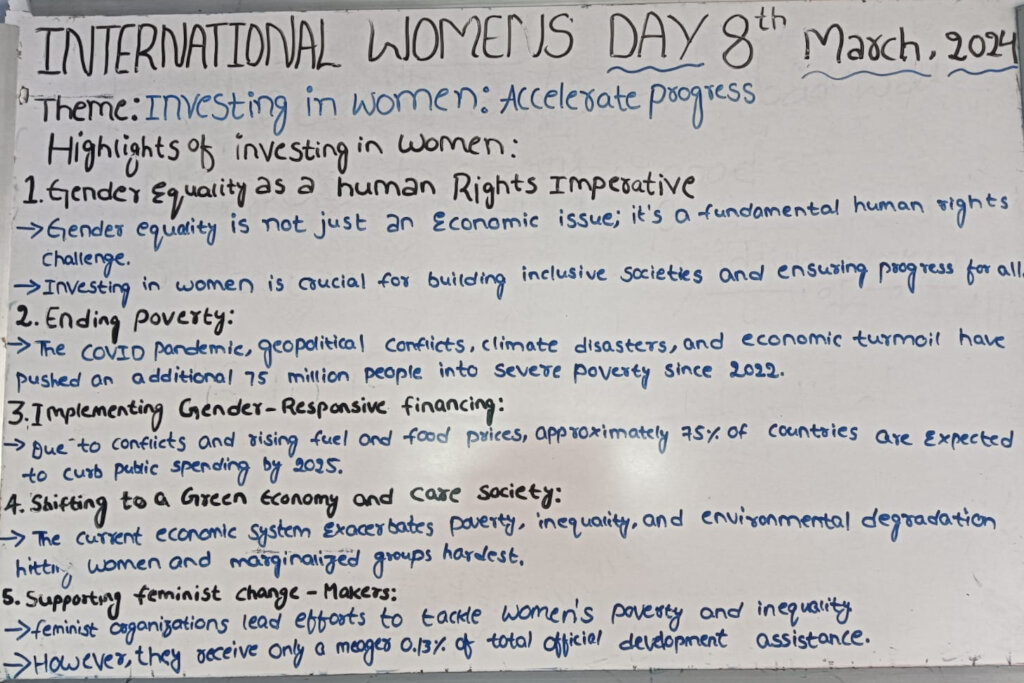 INTERNATIONAL WOMENS DAY 8th March, 2024
Theme: Investing in women: Accelerate progress
Highlights of investing in women:
1. Gender Equality as a human Rights Imperative
→ Gender equality is not just an Economic issue; it's a fundamental human rights
challenge.
→ Investing in women is crucial for building inclusive societies and ensuring progress for all.
2. Ending poverty:
→ The COVID pandemic, geopolitical conflicts, climate disasters, and economic turmoil have
pushed an additional 75 million people into severe poverty since 2022.
3. Implementing Gender-Responsive financing:
→ Due to conflicts and rising fuel and food prices, approximately 75% of countries are Expected
to curb public spending by 2025.
4. Shifting to a Green Economy and care society:
→ The current economic system Exacerbates poverty, inequality, and environmental degradation
hitting women and marginalized groups hardest.
5. Supporting feminist change-Makers:
→ feminist organizations lead efforts to tackle women's poverty and inequality
→ However, they receive only a meager 0.13% of total official development assistance.